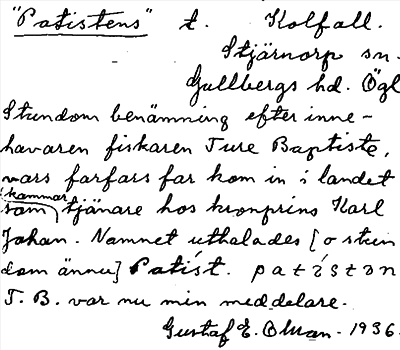 "Patistens" t. Kolfall.
Stjärnorp sn.
Gullbergs hd. Ögl
Stundom benämning efter inne-
havaren fiskaren Ture Baptiste,
vars farfars far kom in i landet
som kammartjänare hos kronprins Karl
Johan. Namnet uthalades [o stun
dom ännu] Patíst. patístən
T. B. var nu min meddelare.
Gustaf E. Olsson. 1936.